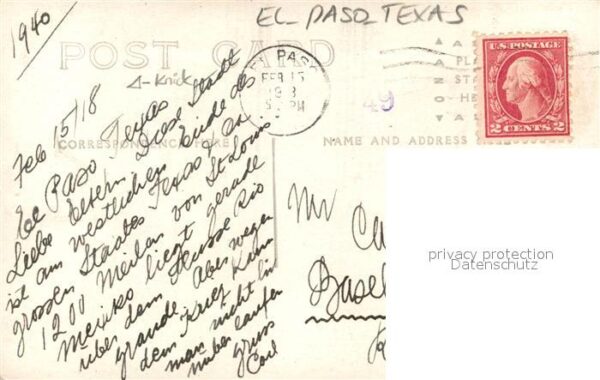 1940
EL-PASO TEXAS
POST CARD
EL PASO
FEB 15
PM
U.S. POSTAGE
2 CENTS 2
Δ-Knick
49
CORRESPONDENCE HERE
NAME AND ADDRESS
Feb 15/18
El Paso Texas
Liebe Eltern Diese Stadt
ist am westlichen Ende des
grossen Staates Texas etwa
1200 Meilen von St Louis
Mexiko liegt gerade
über dem Flusse Rio
grande. Aber wegen
dem Krieg kann
man nicht hin
nüber laufen
gruss
Carl
Mr
Basel
privacy protection
Datenschutz